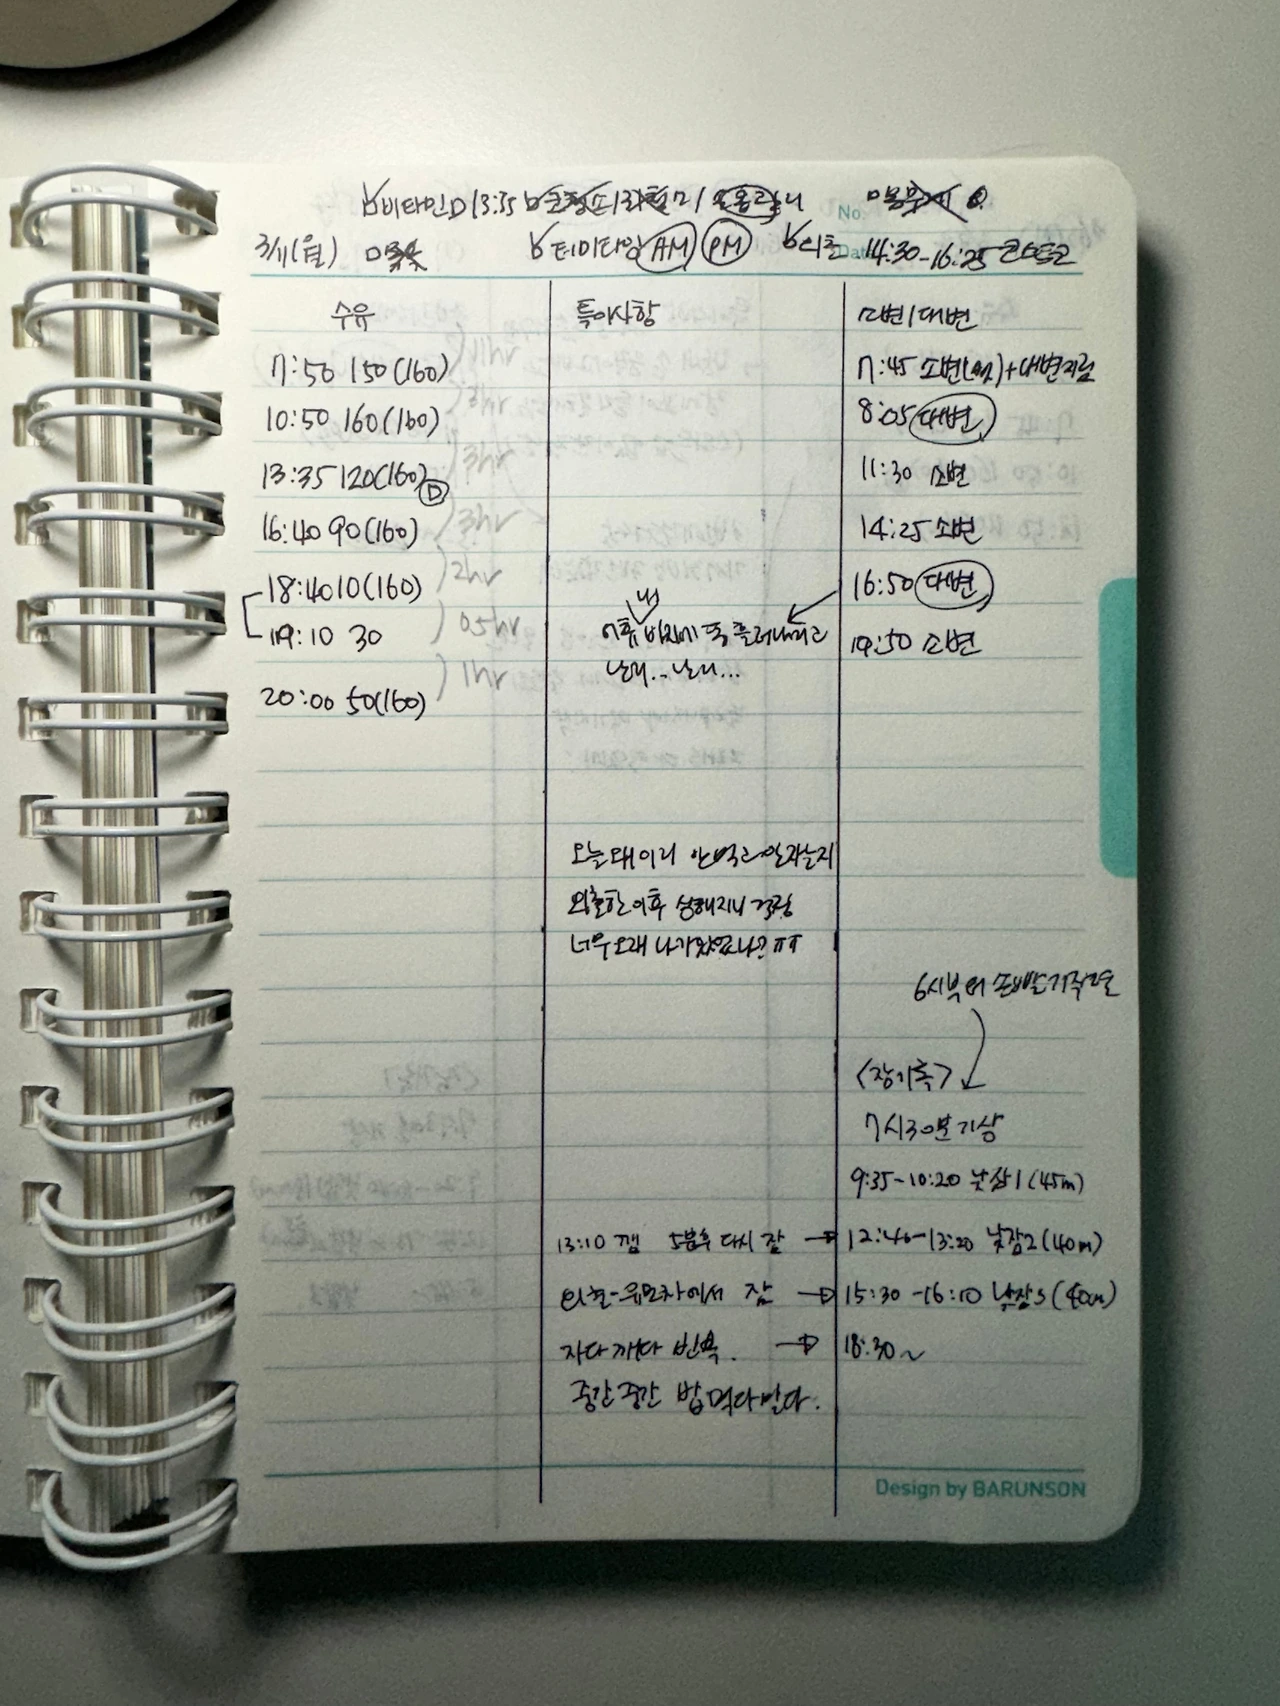 비타민D 13:35
No.
3/11(월)
터미타임 AM PM 외출 14:30-16:25 코스트코
Date
수유
특이사항
소변/대변
7:50 150(160)
10:50 160(160)
13:35 120(160) D
16:40 90(160)
18:40 10(160)
19:10 30
20:00 50(160)
3hr
3hr
2hr
0.5hr
1hr
7:45 소변( )+대변지림
8:05 대변
11:30 소변
14:25 소변
16:50 대변
19:50 소변
어휴 바지에 똥 흘러내리고
난리.. 난리...
오늘 왜이리 안먹고 안자는지
외출한 이후 심해지니 걱정
너무 오래 나가있었나? ㅠㅠ
6시부터 손빨기 작렬
<잠기록>
7시30분 기상
9:35-10:20 낮잠1 (45m)
13:10 깸 5분후 다시 잠 → 12:40-13:20 낮잠2 (40m)
외출-유모차에서 잠 → 15:30-16:10 낮잠3 (40m)
자다 깨다 반복. → 18:30~
중간중간 밥 먹다 말다.
Design by BARUNSON